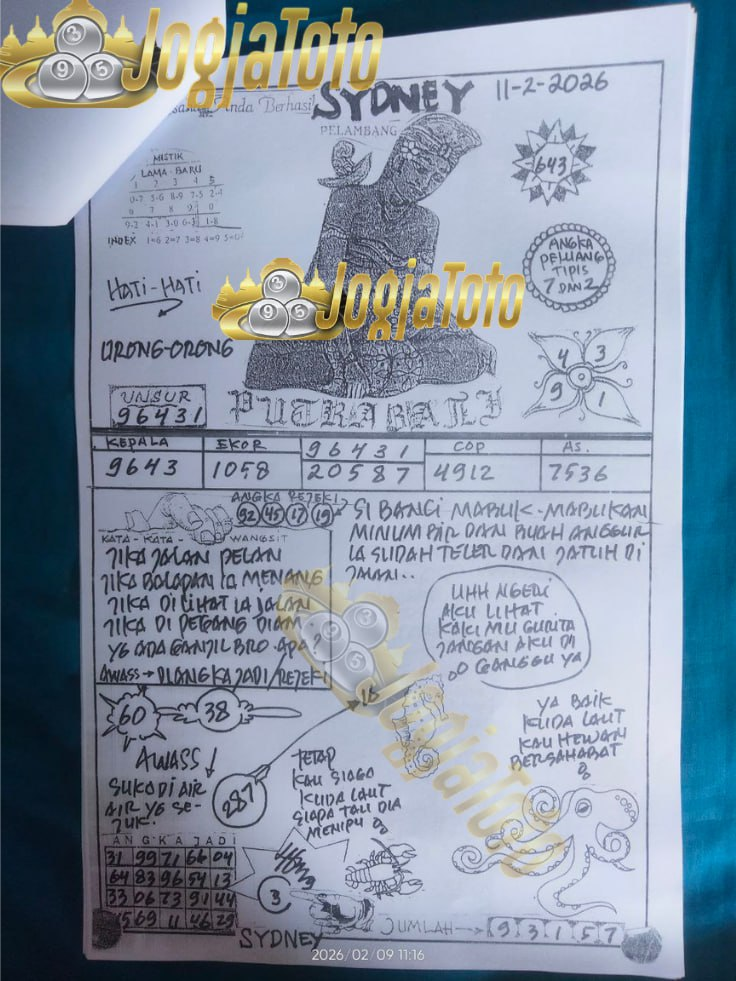 JogjaToto
3
9 5
Anda Berhasil
SYDNEY
11-2-2026
PELAMBANG
MISTIK
LAMA - BARU
1 2 3 4 5
0-7 5-6 8-9 7-5 2-4
6 7 8 9 0
9-2 4-1 3-0 6-3 1-8
INDEX 1=6 2=7 3=8 4=9 5=0
643
ANGKA
PELUANG
TIPIS
7 DAN 2
HATI-HATI
ORONG-ORONG
JogjaToto
3
9 5
4 3
9 1
UNSUR
96431
PUTRA BALI
KEPALA EKOR 96431 COP AS.
9643 1058 20587 4912 7536
ANGKA REJEKI
92 45 17 19
KATA - KATA - WANGSIT
JIKA JALAN PELAN
JIKA BALAPAN IA MENANG
JIKA DI LIHAT IA JALAN
JIKA DI PEGANG DIAM
YG ADA GANJIL BRO APA?
AWASS → DI ANGKA JADI/REJEKI
SI BANCI MABUK-MABUKAN
MINUM BIR DAN BUAH ANGGUR
IA SUDAH TELER DAN JATUH DI
JALAN..
UHH NGERI
AKU LIHAT
KAKI MU GURITA
JANGAN AKU DI
GANGGU YA
JogjaToto
3
9 5
60
38
18
287
AWASS
SUKA DI AIR
AIR YG SE-
JUK.
TETAP
KAU SIAGA
KUDA LAUT
SIAPA TAU DIA
MENIPU
YA BAIK
KUDA LAUT
KAU HEWAN
BERSAHABAT
ANGKA JADI
31 99 71 66 04
64 83 96 54 13
33 06 73 91 44
15 69 11 46 29
3
JUMLAH → 9 3 1 5 7
SYDNEY
2026/02/09 11:16